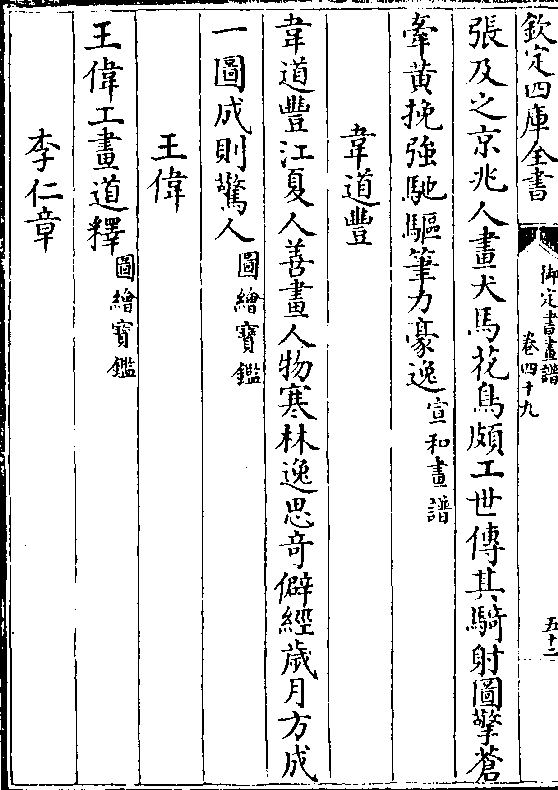 欽定四庫全書
御定書畫譜
卷四十九
五十二
張及之京兆人畫犬馬花鳥頗工世傳其騎射圖擎蒼
牽黃挽強馳驅筆力豪逸宣和畫譜
韋道豐
韋道豐江夏人善畫人物寒林逸思奇僻經歲月方成
一圖成則驚人圖繪寶鑑
王偉
王偉工畫道釋圖繪寶鑑
李仁章